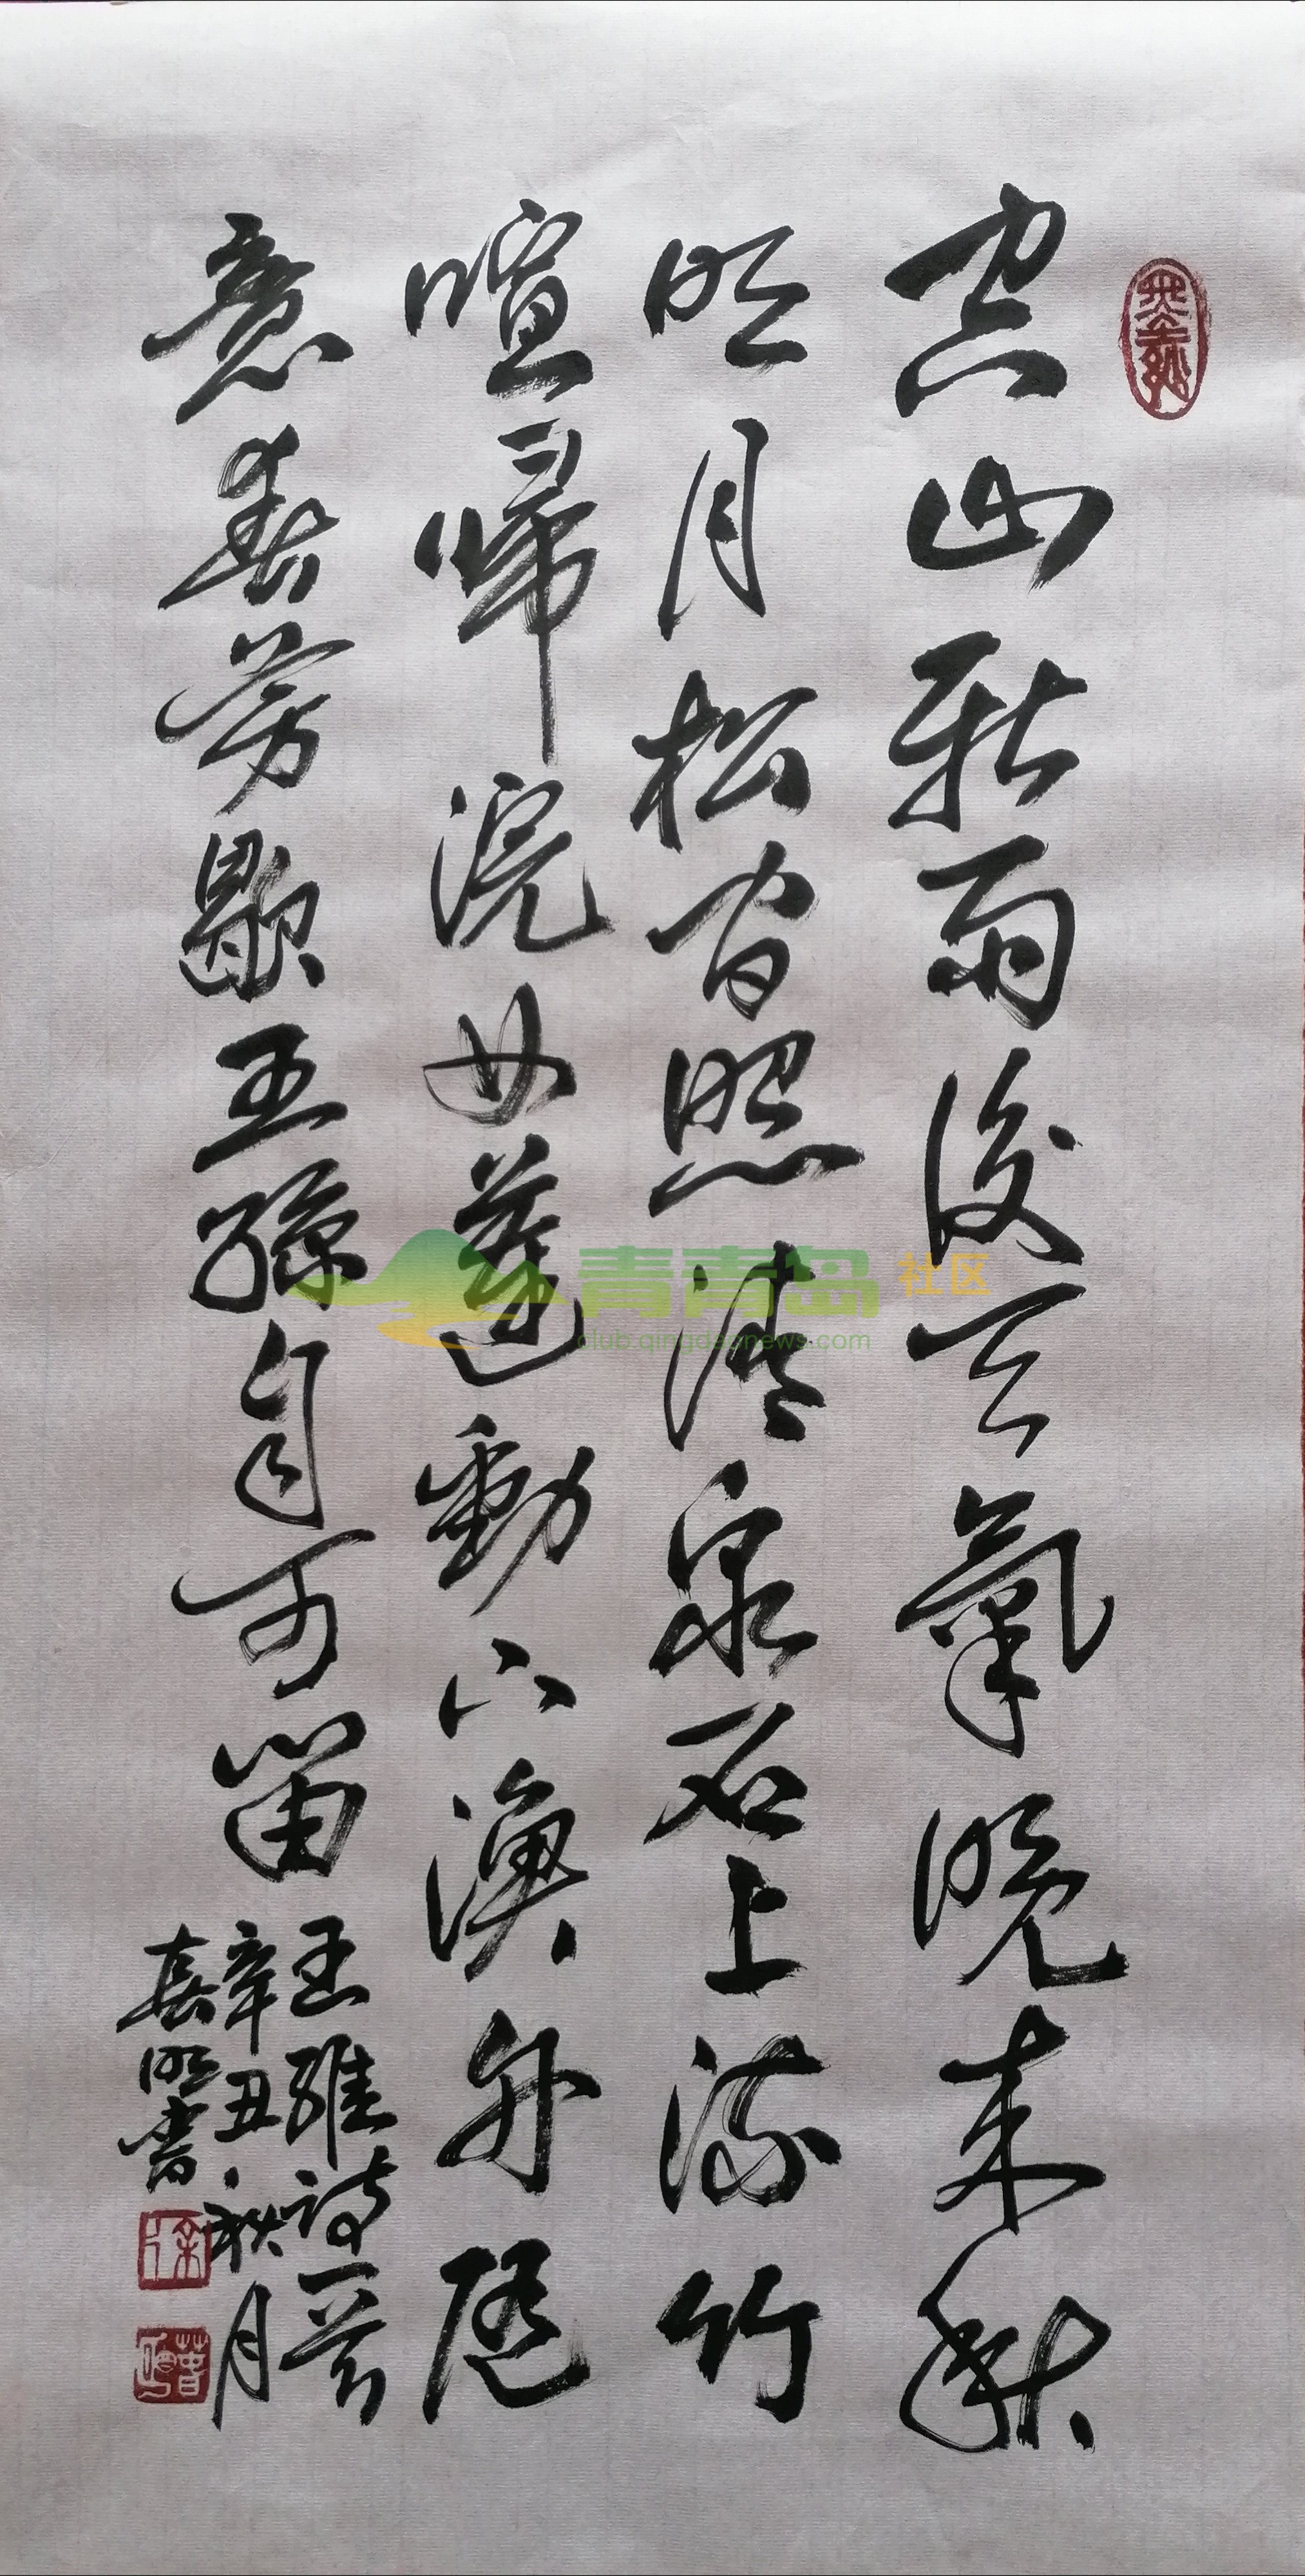 空山新雨後天氣晚来秋
明月松間照清泉石上流竹
喧歸浣女蓮動下漁舟随
意春芳歇王孫自可留
王維詩一首
辛丑秋月
春明書
青青岛社区
club.qingdaonews.com